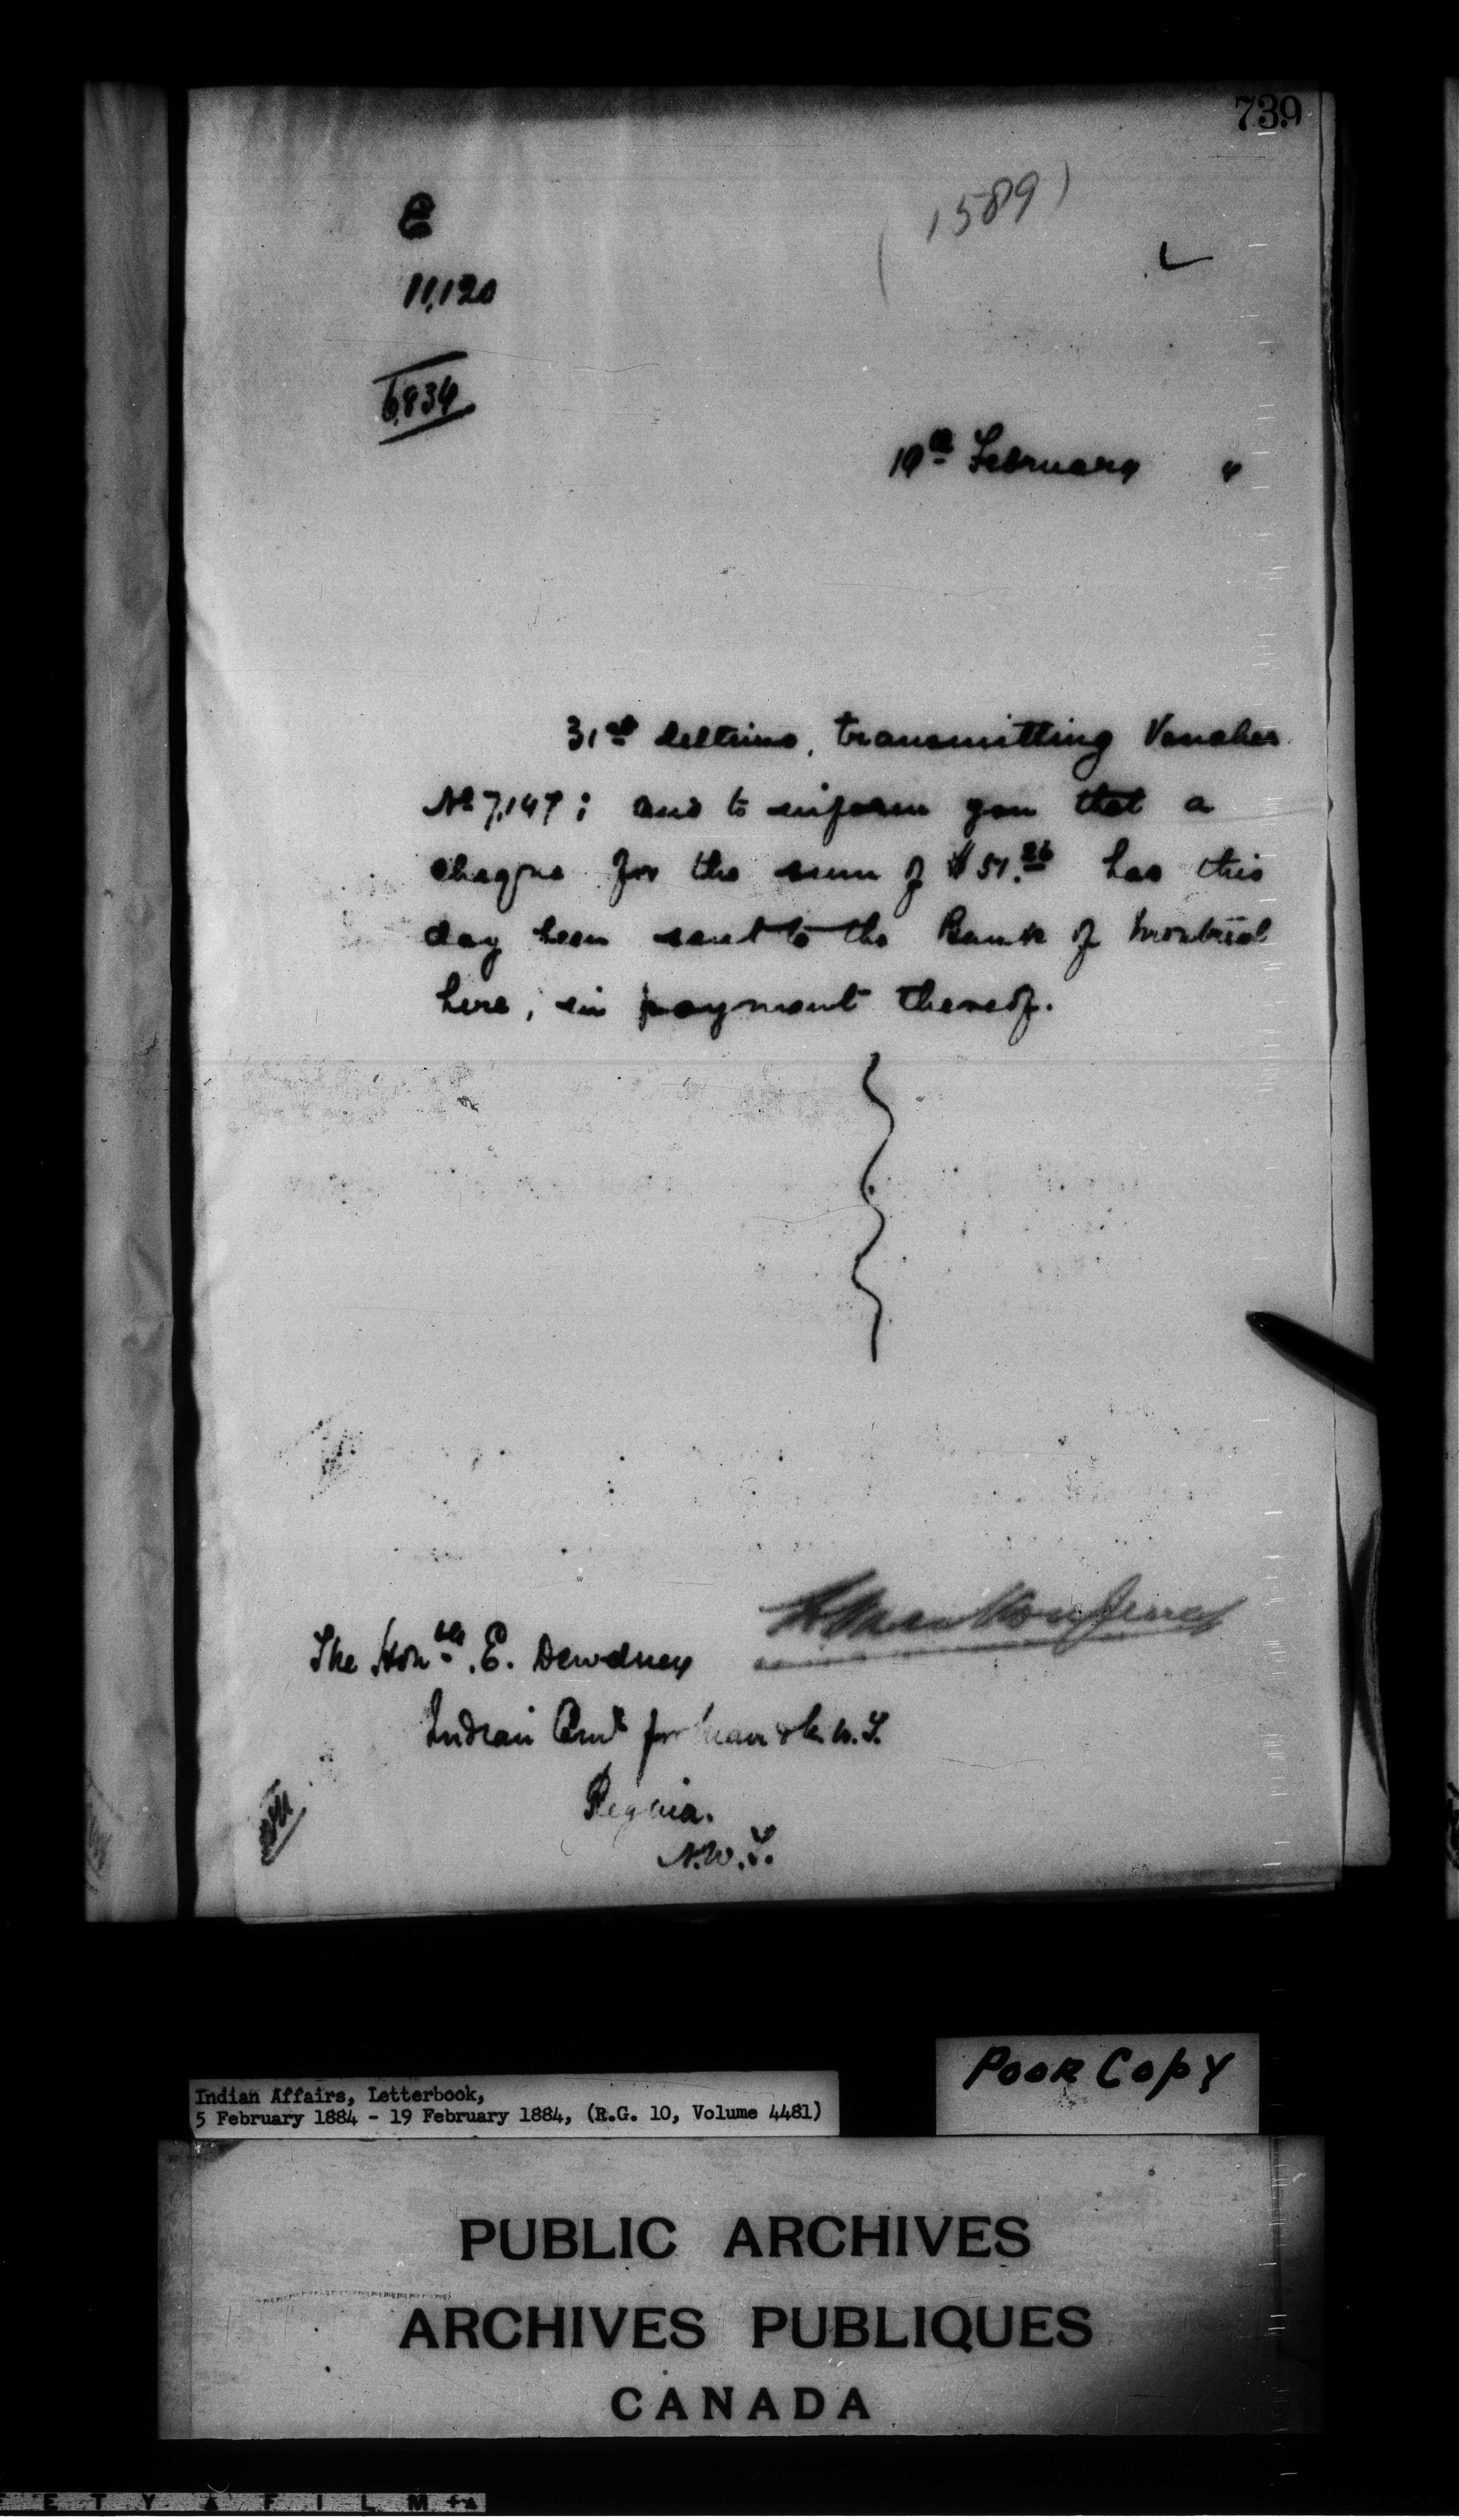 739
(1589)
E
11,120
6,834
19th February 4
31st Ultimo, transmitting Voucher
No 7,147; and to inform you that a
cheque for the sum of $51.26 has this
day been sent to the Bank of Montreal
here, in payment thereof.
The Honble. E. Dewdney
Indian Comr for Man & N.W.T.
Regina.
N.W.T.
Poor Copy
Indian Affairs, Letterbook,
5 February 1884 - 19 February 1884, (R.G. 10, Volume 4481)
PUBLIC ARCHIVES
ARCHIVES PUBLIQUES
CANADA
E T Y FILM